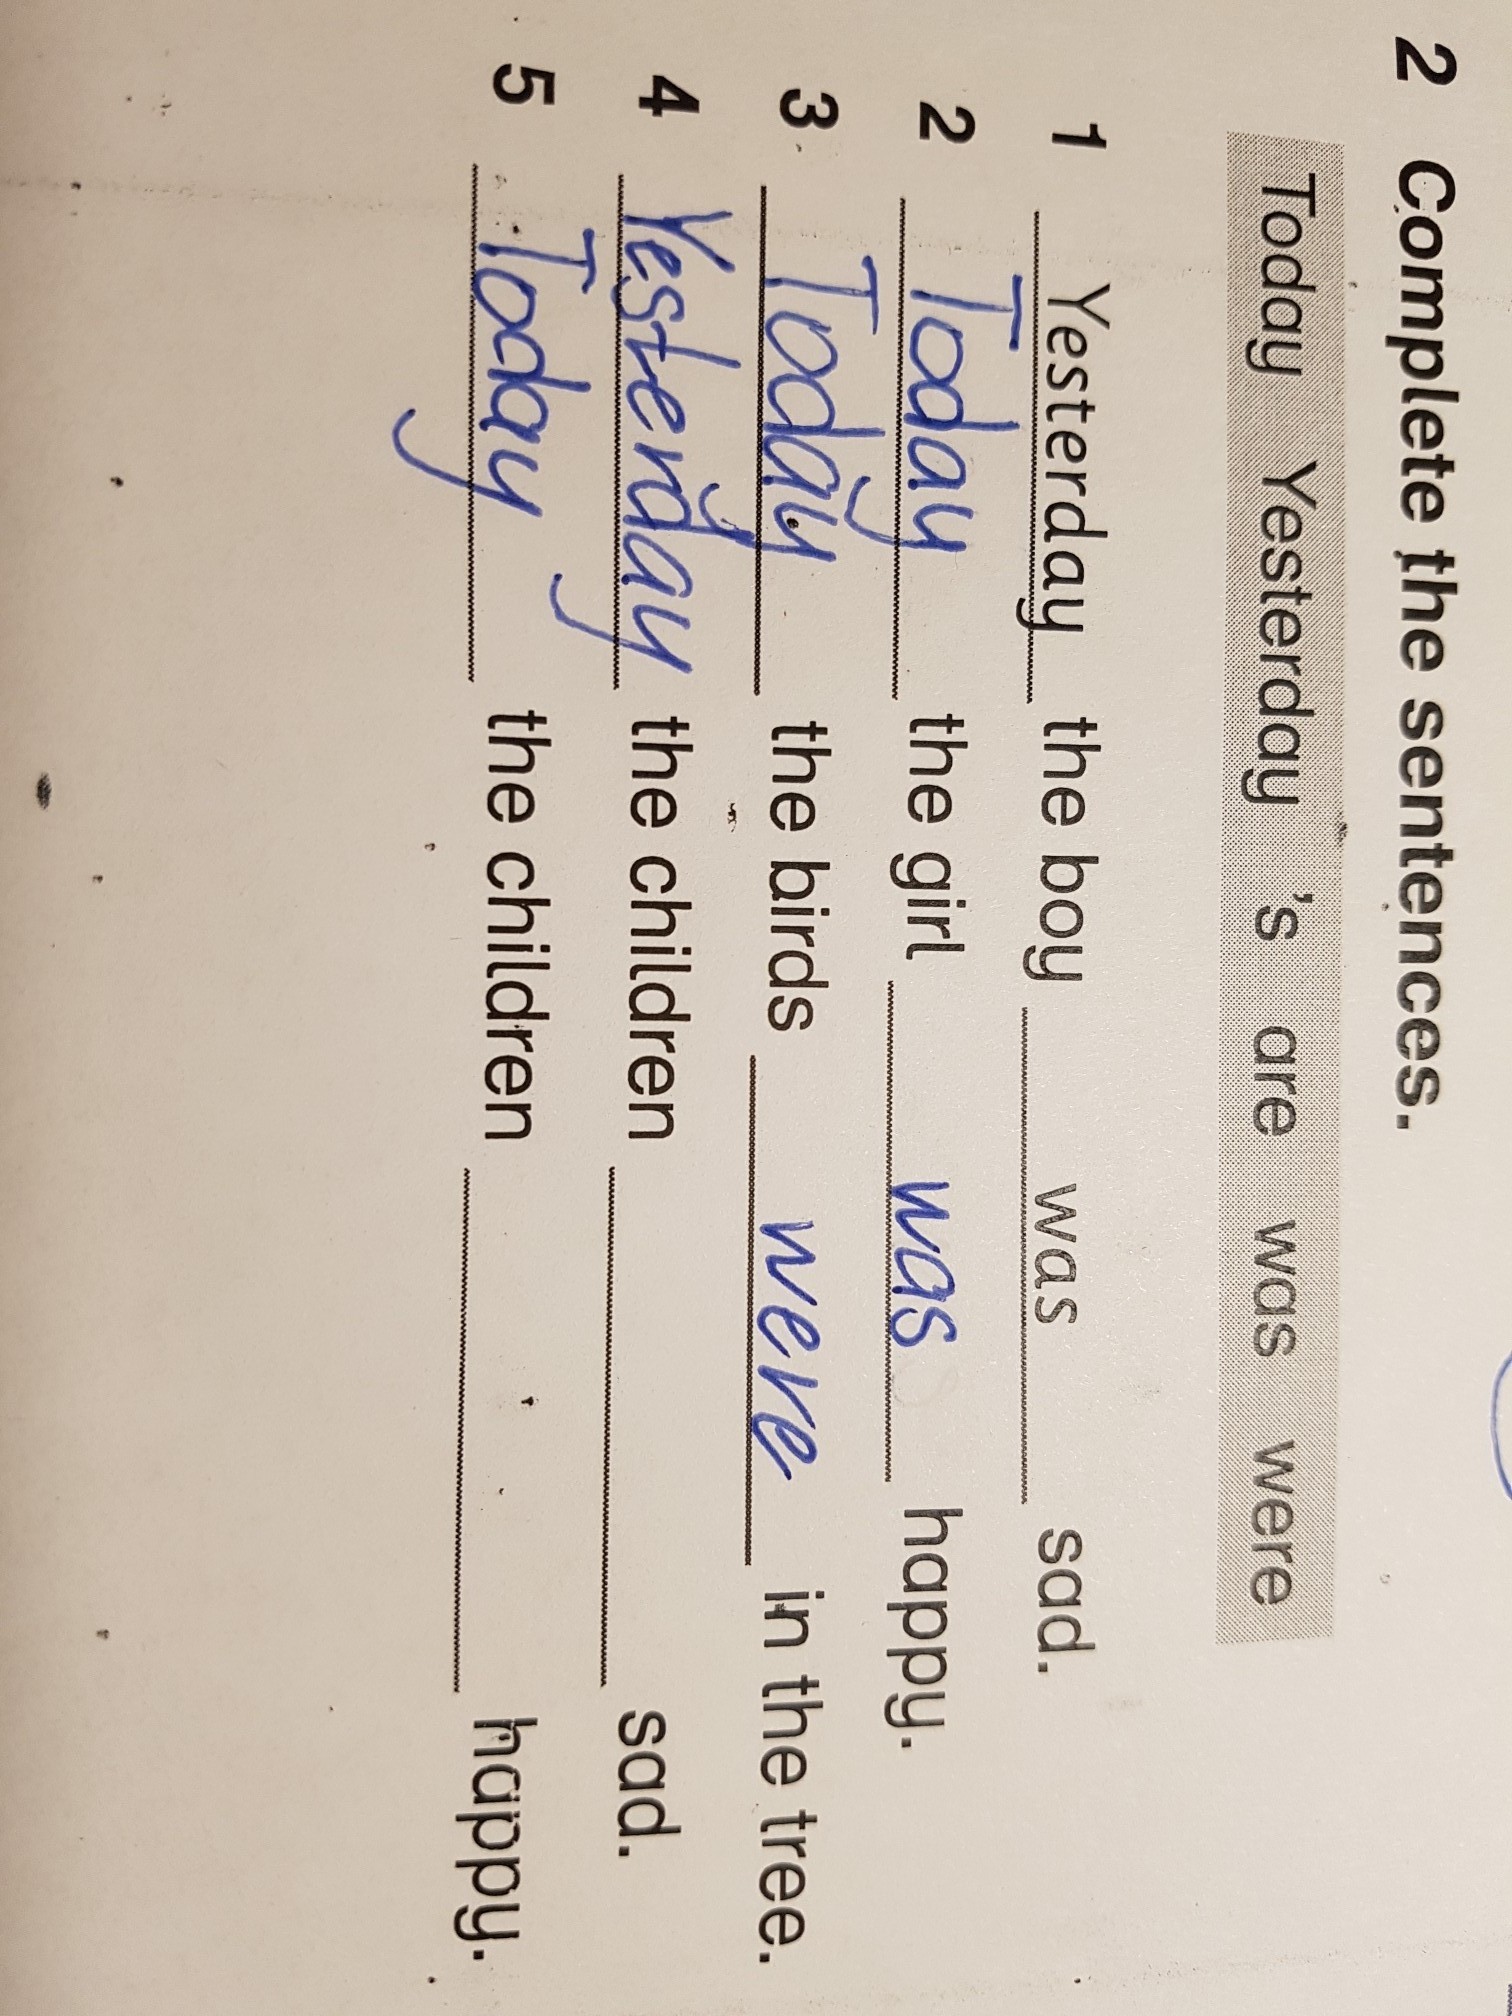 2 Complete the sentences.
Today Yesterday 's are was were
1 Yesterday the boy was sad.
2 Today the girl was happy.
3 Today the birds were in the tree.
4 Yesterday the children ____ sad.
5 Today the children ____ happy.